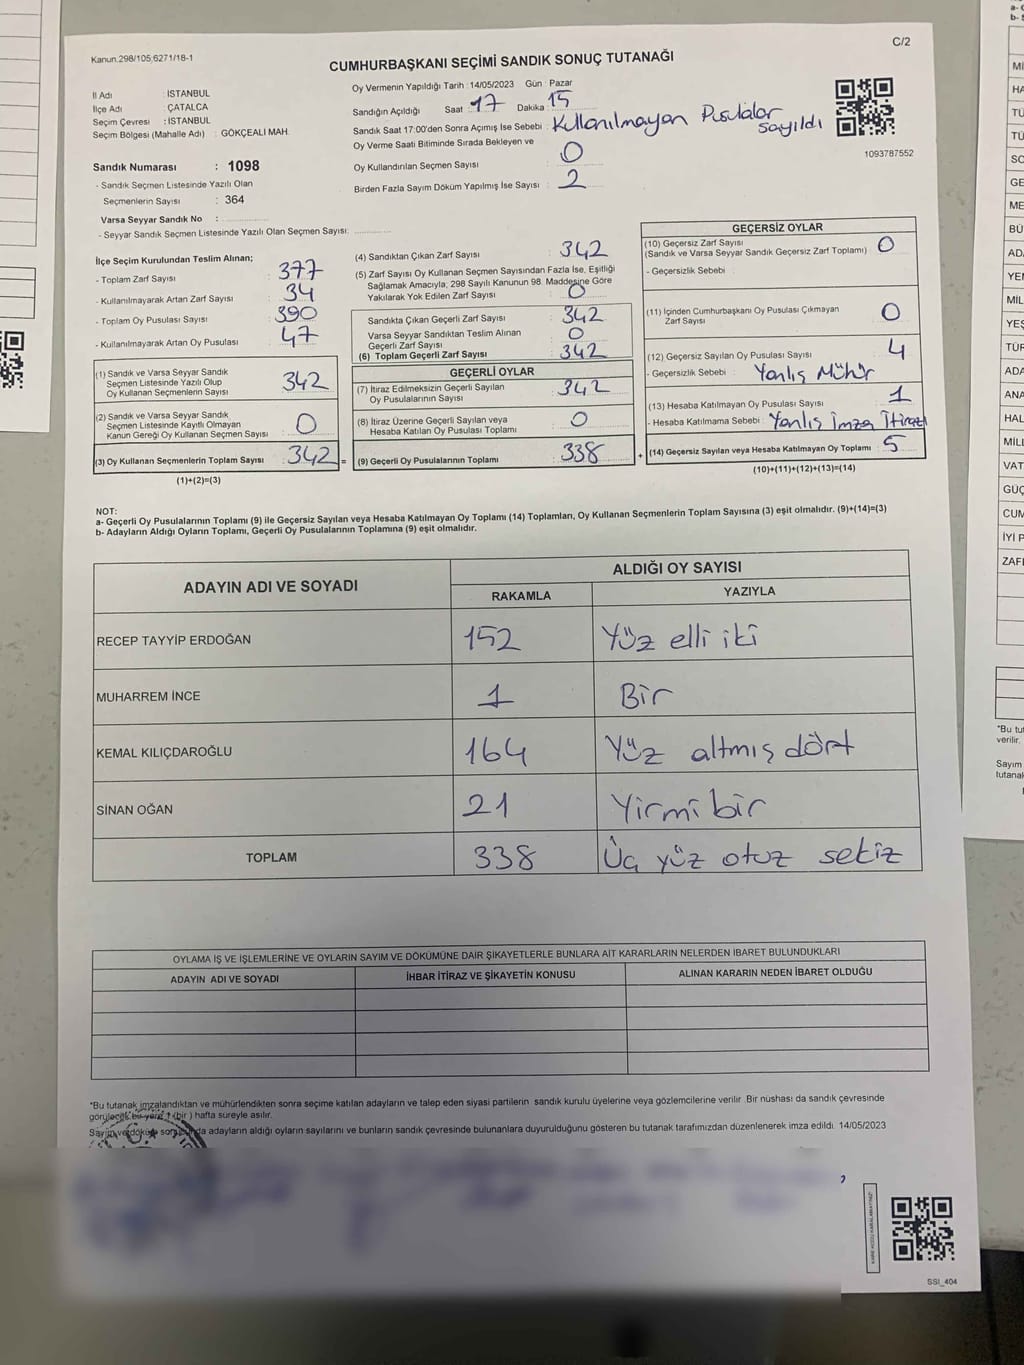 C/2
Kanun.298/105;6271/18-1
CUMHURBAŞKANI SEÇİMİ SANDIK SONUÇ TUTANAĞI
İl Adı : İSTANBUL
İlçe Adı : ÇATALCA
Seçim Çevresi : İSTANBUL
Seçim Bölgesi (Mahalle Adı) : GÖKÇEALİ MAH.
Sandık Numarası : 1098
- Sandık Seçmen Listesinde Yazılı Olan
Seçmenlerin Sayısı : 364
Varsa Seyyar Sandık No :
- Seyyar Sandık Seçmen Listesinde Yazılı Olan Seçmen Sayısı:
Oy Vermenin Yapıldığı Tarih : 14/05/2023 Gün : Pazar
Sandığın Açıldığı Saat : 17 Dakika : 15
Sandık Saat 17:00'den Sonra Açımış İse Sebebi : Kullanılmayan Pusulalar
sayıldı
Oy Verme Saati Bitiminde Sırada Bekleyen ve
Oy Kullandırılan Seçmen Sayısı : 0
Birden Fazla Sayım Döküm Yapılmış İse Sayısı : 2
1093787552
İlçe Seçim Kurulundan Teslim Alınan;
- Toplam Zarf Sayısı : 377
- Kullanılmayarak Artan Zarf Sayısı : 34
- Toplam Oy Pusulası Sayısı : 390
- Kullanılmayarak Artan Oy Pusulası : 47
(1) Sandık ve Varsa Seyyar Sandık
Seçmen Listesinde Yazılı Olup
Oy Kullanan Seçmenlerin Sayısı : 342
(2) Sandık ve Varsa Seyyar Sandık
Seçmen Listesinde Kayıtlı Olmayan
Kanun Gereği Oy Kullanan Seçmen Sayısı : 0
(3) Oy Kullanan Seçmenlerin Toplam Sayısı : 342 =
(1)+(2)=(3)
(4) Sandıktan Çıkan Zarf Sayısı : 342
(5) Zarf Sayısı Oy Kullanan Seçmen Sayısından Fazla İse, Eşitliği
Sağlamak Amacıyla; 298 Sayılı Kanunun 98. Maddesine Göre
Yakılarak Yok Edilen Zarf Sayısı : 0
Sandıkta Çıkan Geçerli Zarf Sayısı : 342
Varsa Seyyar Sandıktan Teslim Alınan
Geçerli Zarf Sayısı : 0
(6) Toplam Geçerli Zarf Sayısı : 342
GEÇERLİ OYLAR
(7) İtiraz Edilmeksizin Geçerli Sayılan
Oy Pusulalarının Sayısı : 342
(8) İtiraz Üzerine Geçerli Sayılan veya
Hesaba Katılan Oy Pusulası Toplamı : 0
(9) Geçerli Oy Pusulalarının Toplamı : 338 +
GEÇERSİZ OYLAR
(10) Geçersiz Zarf Sayısı : 0
(Sandık ve Varsa Seyyar Sandık Geçersiz Zarf Toplamı)
- Geçersizlik Sebebi
(11) İçinden Cumhurbaşkanı Oy Pusulası Çıkmayan
Zarf Sayısı : 0
(12) Geçersiz Sayılan Oy Pusulası Sayısı : 4
- Geçersizlik Sebebi : Yanlış Mühür
(13) Hesaba Katılmayan Oy Pusulası Sayısı : 1
- Hesaba Katılmama Sebebi : Yanlış İmza İtirazı
(14) Geçersiz Sayılan veya Hesaba Katılmayan Oy Toplamı : 5
(10)+(11)+(12)+(13)=(14)
NOT:
a- Geçerli Oy Pusulalarının Toplamı (9) ile Geçersiz Sayılan veya Hesaba Katılmayan Oy Toplamı (14) Toplamları, Oy Kullanan Seçmenlerin Toplam Sayısına (3) eşit olmalıdır. (9)+(14)=(3)
b- Adayların Aldığı Oyların Toplamı, Geçerli Oy Pusulalarının Toplamına (9) eşit olmalıdır.
ADAYIN ADI VE SOYADI ALDIĞI OY SAYISI
RAKAMLA YAZIYLA
RECEP TAYYİP ERDOĞAN 152 Yüz elli iki
MUHARREM İNCE 1 Bir
KEMAL KILIÇDAROĞLU 164 Yüz altmış dört
SİNAN OĞAN 21 Yirmi bir
TOPLAM 338 Üç yüz otuz sekiz
OYLAMA İŞ VE İŞLEMLERİNE VE OYLARIN SAYIM VE DÖKÜMÜNE DAİR ŞİKAYETLERLE BUNLARA AİT KARARLARIN NELERDEN İBARET BULUNDUKLARI
ADAYIN ADI VE SOYADI İHBAR İTİRAZ VE ŞİKAYETİN KONUSU ALINAN KARARIN NEDEN İBARET OLDUĞU
*Bu tutanak imzalandıktan ve mühürlendikten sonra seçime katılan adayların ve talep eden siyasi partilerin sandık kurulu üyelerine veya gözlemcilerine verilir. Bir nüshası da sandık çevresinde
görülecek bir yere 1 (bir) hafta süreyle asılır.
Sayım ve döküm sonunda adayların aldığı oyların sayılarını ve bunların sandık çevresinde bulunanlara duyurulduğunu gösteren bu tutanak tarafımızdan düzenlenerek imza edildi. 14/05/2023
SSI_404